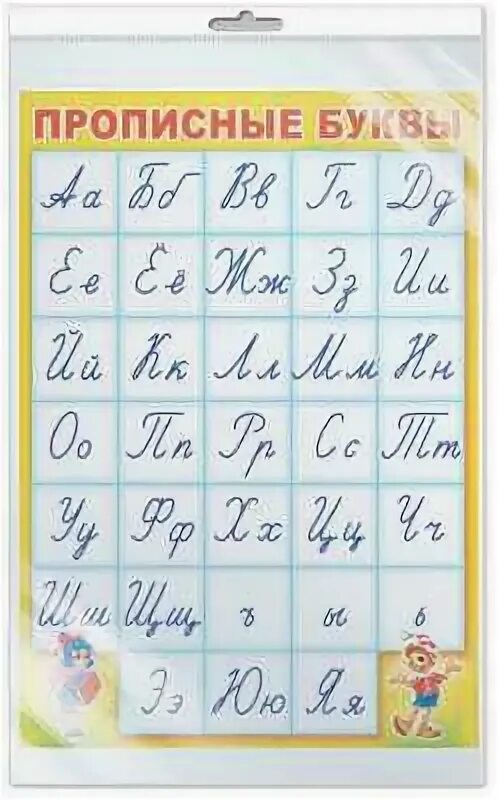 ПРОПИСНЫЕ БУКВЫ
Аа Бб Вв Гг Дд
Ее Ёё Жж Зз Ии
Йй Кк Лл Мм Нн
Оо Пп Рр Сс Тт
Уу Фф Хх Цц Чч
Шш Щщ ъ ы ь
Ээ Юю Яя